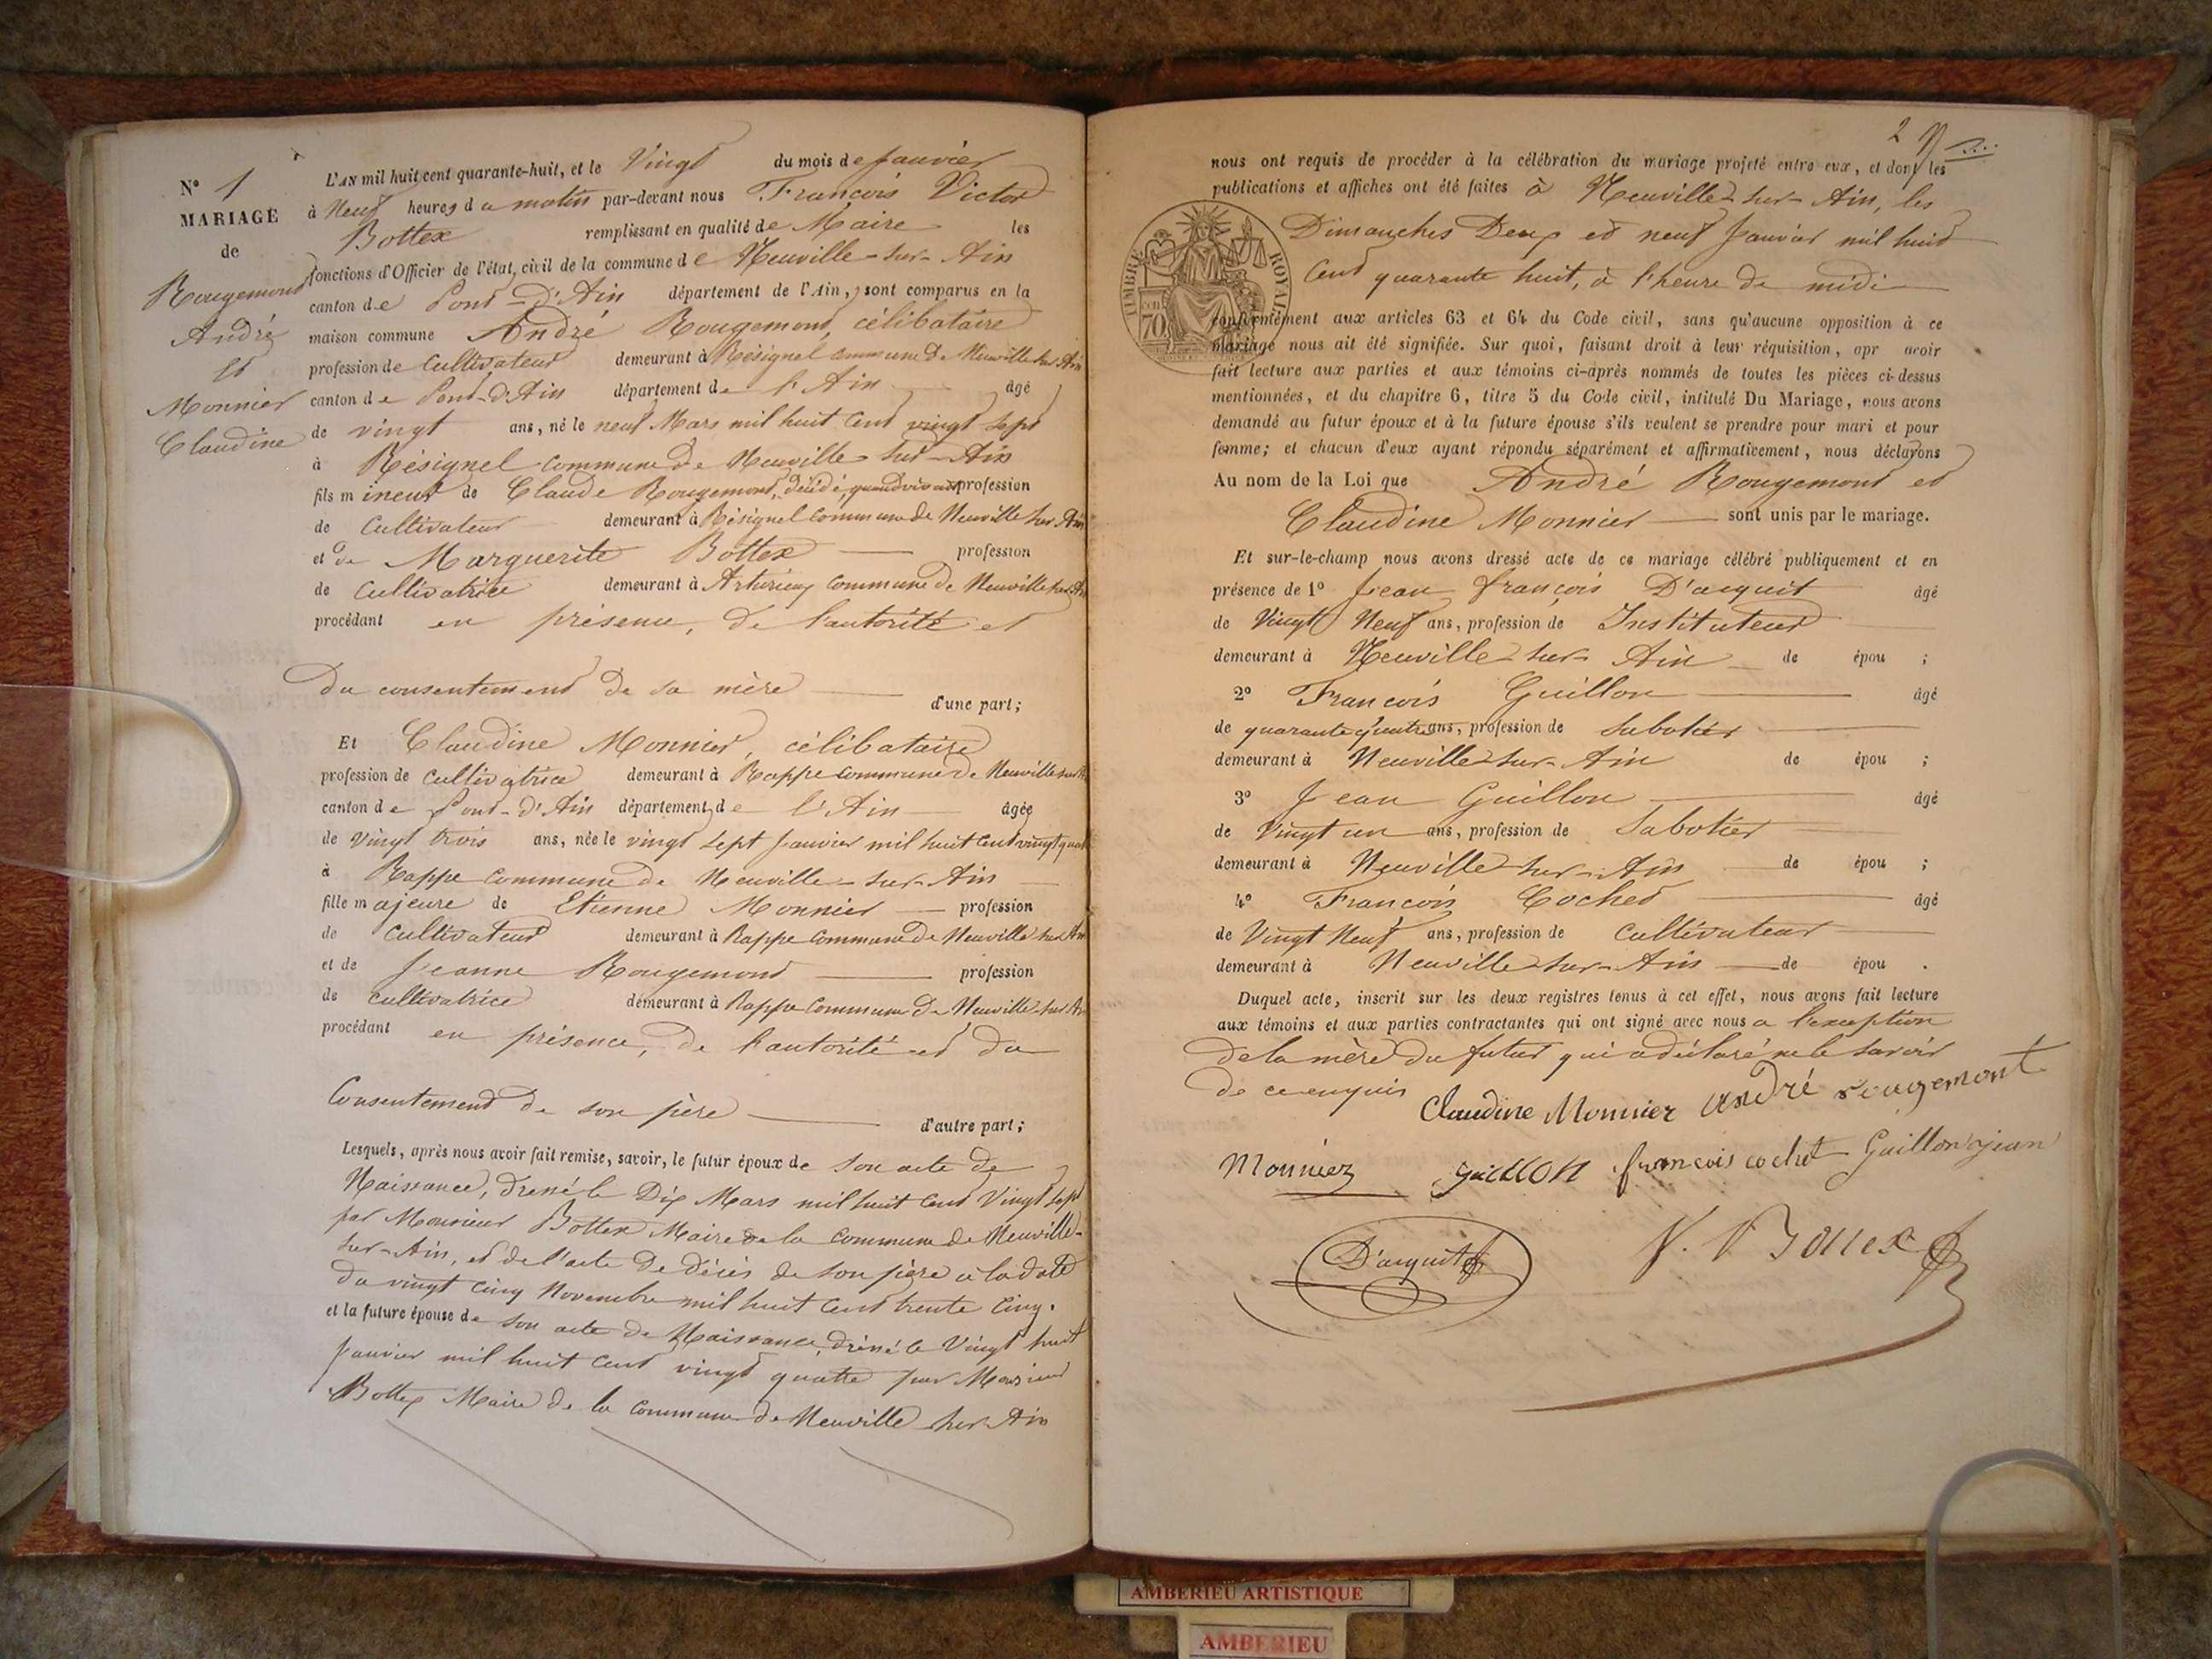 N° 1
MARIAGE
de
Rougemont
André
et
Monnier
Claudine
L'AN mil huit cent quarante-huit, et le Vingt du mois de Janvier
à Neuf heures du matin par-devant nous François Victor
Bottex remplissant en qualité de Maire les
fonctions d'Officier de l'état civil de la commune de Neuville-sur-Ain
canton de Pont-d'Ain département de l'Ain, sont comparus en la
maison commune André Rougemont, célibataire
profession de Cultivateur demeurant à Résignel commune de Neuville sur Ain
canton de Pont-d'Ain département de l'Ain âgé
de vingt ans, né le neuf Mars mil huit cent vingt sept
à Résignel commune de Neuville-sur-Ain
fils mineur de Claude Rougemont, décédé, quand vivant profession
de Cultivateur demeurant à Résignel commune de Neuville sur Ain
et de Marguerite Bottex profession
de Cultivatrice demeurant à commune de Neuville sur Ain
procédant en présence, de l'autorité et
du consentement de sa mère d'une part;
Et Claudine Monnier, célibataire
profession de cultivatrice demeurant à Rappe commune de Neuville sur A
canton de Pont-d'Ain département de l'Ain âgée
de vingt trois ans, née le vingt sept Janvier mil huit cent vingt quat
à Rappe commune de Neuville-sur-Ain
fille majeure de Etienne Monnier profession
de Cultivateur demeurant à Rappe commune de Neuville sur Ain
et de Jeanne Rougemont profession
de cultivatrice demeurant à Rappe commune de Neuville sur Ai
procédant en présence, de l'autorité et du
Consentement de son père d'autre part;
Lesquels, après nous avoir fait remise, savoir, le futur époux de son acte de
Naissance, dressé le Dix Mars mil huit cent vingt sept
par Monsieur Bottex Maire de la commune de Neuville-
sur-Ain, et de l'acte de décès de son père à la date
du vingt cinq Novembre mil huit cent trente cinq.
et la future épouse de son acte de Naissance, dressé le Vingt huit
Janvier mil huit cent vingt quatre par Monsieur
Bottex Maire de la commune de Neuville sur Ain
2
nous ont requis de procéder à la célébration du mariage projeté entre eux, et dont les
publications et affiches ont été faites à Neuville-sur-Ain, les
Dimanches Deux et neuf Janvier mil huit
cent quarante huit, à l'heure de midi
TIMBRE ROYAL
70
conformément aux articles 63 et 64 du Code civil, sans qu'aucune opposition à ce
mariage nous ait été signifiée. Sur quoi, faisant droit à leur réquisition, apr avoir
fait lecture aux parties et aux témoins ci-après nommés de toutes les pièces ci-dessus
mentionnées, et du chapitre 6, titre 5 du Code civil, intitulé Du Mariage, nous avons
demandé au futur époux et à la future épouse s'ils veulent se prendre pour mari et pour
femme; et chacun d'eux ayant répondu séparément et affirmativement, nous déclarons
Au nom de la Loi que André Rougemont et
Claudine Monnier sont unis par le mariage.
Et sur-le-champ nous avons dressé acte de ce mariage célébré publiquement et en
présence de 1° Jean François D'acquit âgé
de Vingt Neuf ans, profession de Instituteur
demeurant à Neuville-sur-Ain de épou ;
2° François Guillon âgé
de quarante quatre ans, profession de Sabotier
demeurant à Neuville-sur-Ain de épou ;
3° Jean Guillon âgé
de Vingt un ans, profession de Sabotier
demeurant à Neuville-sur-Ain de épou ;
4° François Cochet âgé
de Vingt Neuf ans, profession de Cultivateur
demeurant à Neuville-sur-Ain de épou .
Duquel acte, inscrit sur les deux registres tenus à cet effet, nous avons fait lecture
aux témoins et aux parties contractantes qui ont signé avec nous à l'exception
de la mère du futur qui a déclaré ne le savoir
de ce enquis Claudine Monnier andré rougemont
Monnier guillon francois cochet Guillon jean
D'acquit V. Bottex
AMBERIEU ARTISTIQUE
AMBERIEU